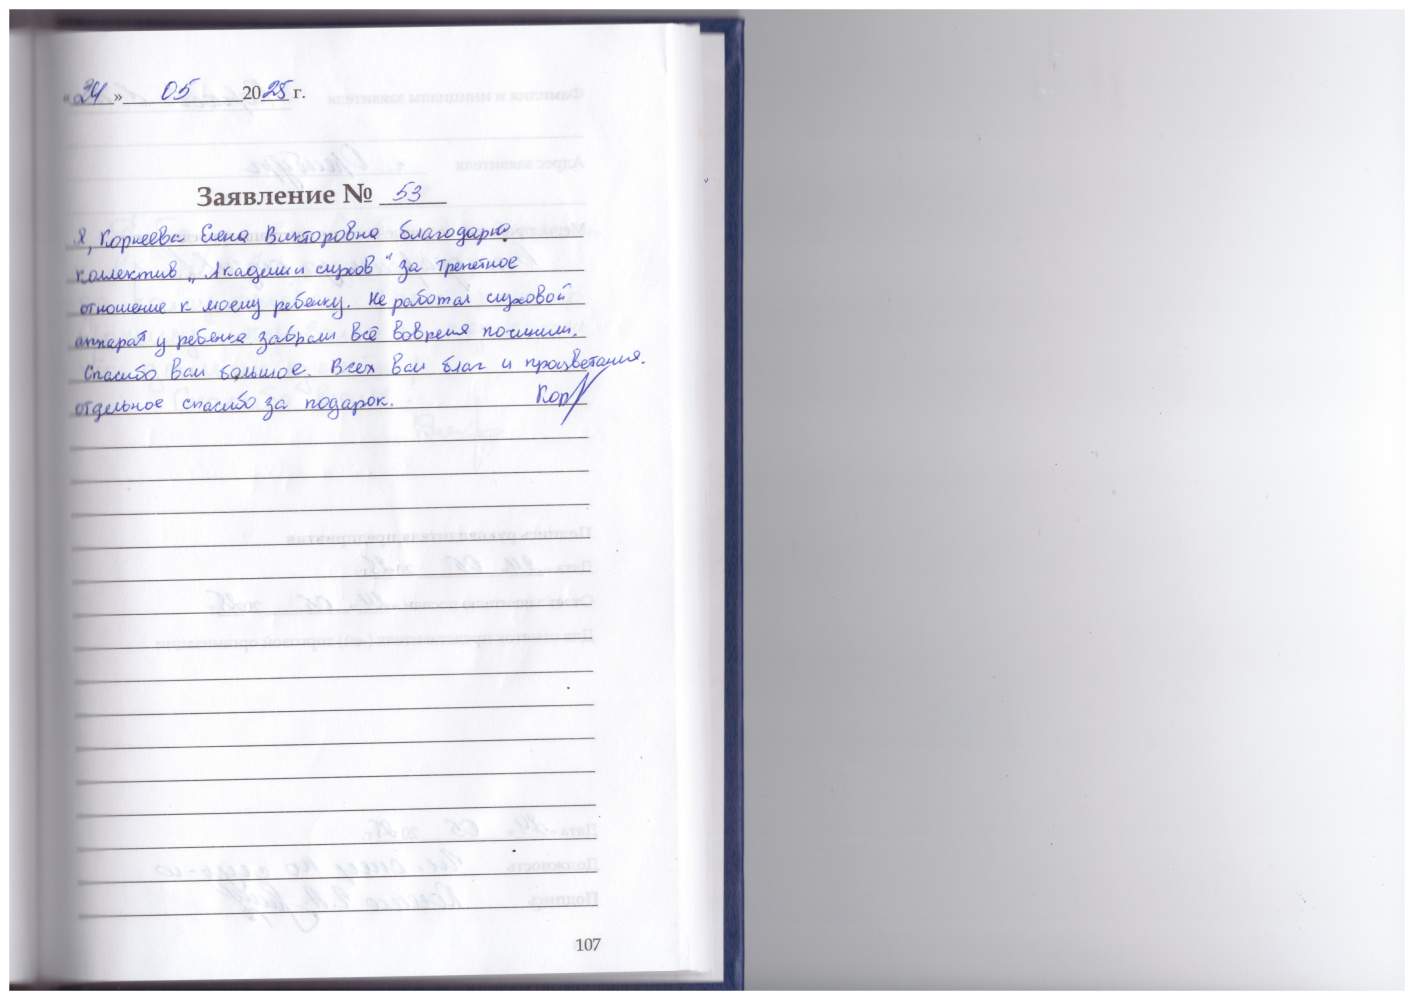 «24» 05 2025 г.
Заявление № 53
Я, Корнеева Елена Викторовна благодарю
коллектив „Академии слухов“ за трепетное
отношение к моему ребенку. Не работал слуховой
аппарат у ребенка забрали всё вовремя починили.
Спасибо вам большое. Всех вам благ и процветания.
отдельное спасибо за подарок. Кор
107